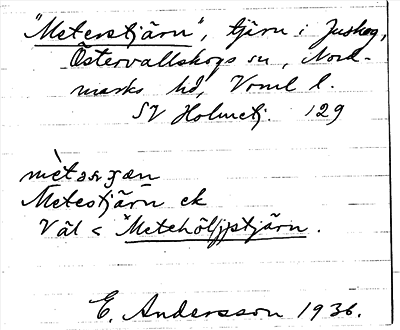 "Meterstjärn", tjärn i Juskog,
Östervallskogs sn, Nord-
marks hd, Vrml l.
SV Holmetj. 129
Metestjärn ek
Väl < *Metehöljstjärn.
E. Andersson 1936.